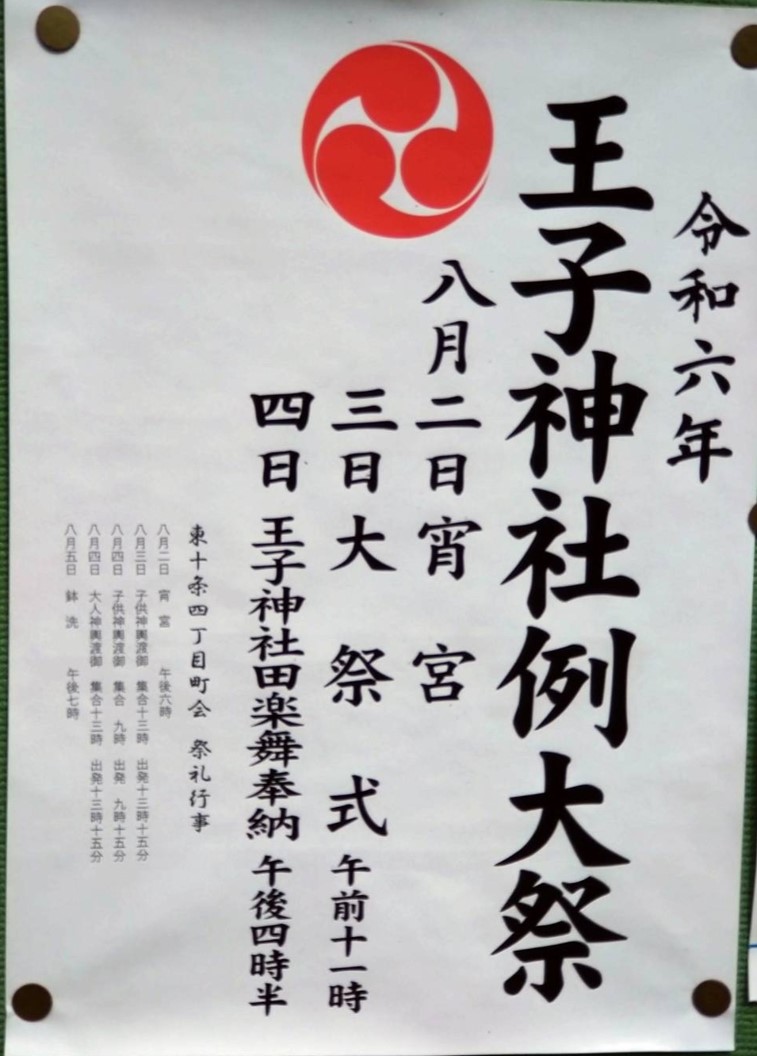 令和六年
王子神社例大祭
八月二日宵宮
三日大祭式 午前十一時
四日 王子神社田楽舞奉納 午後四時半
東十条四丁目町会 祭礼行事
八月二日 宵宮 午後六時
八月三日 子供神輿渡御 集合十三時 出発十三時十五分
八月四日 子供神輿渡御 集合 九時 出発 九時十五分
八月四日 大人神輿渡御 集合十三時 出発十三時十五分
八月五日 鉢洗 午後七時